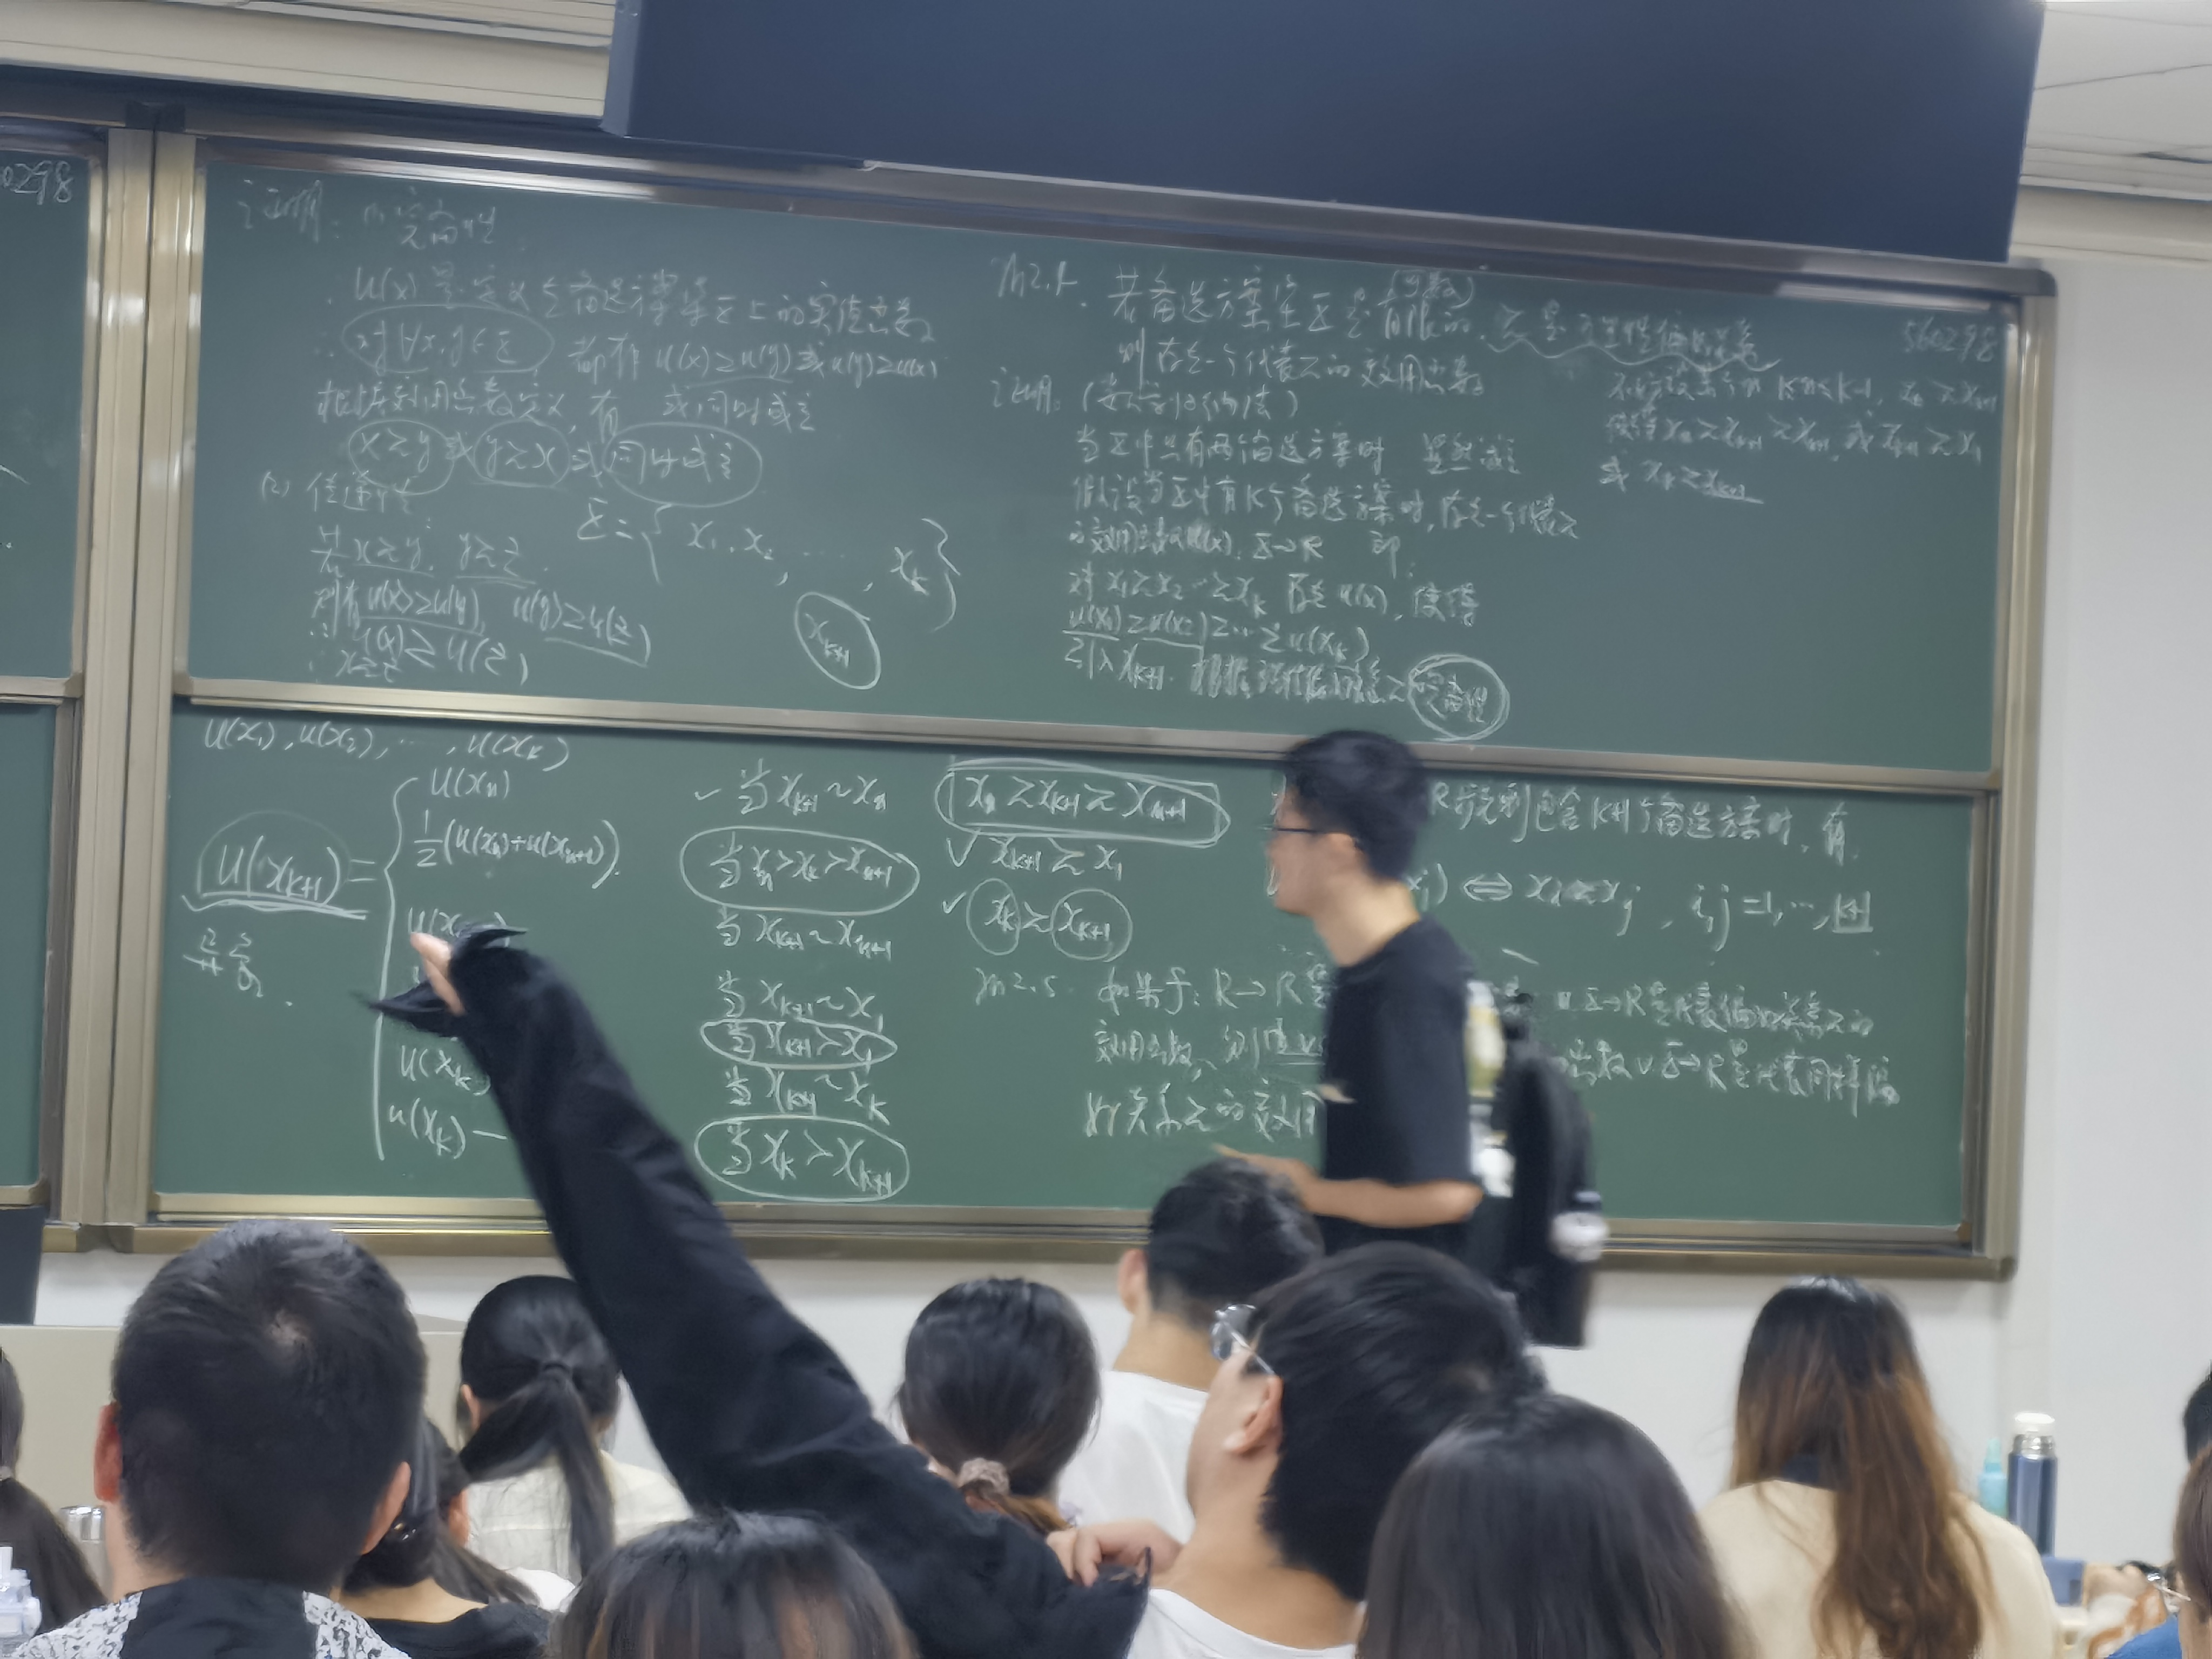 0298
证明: (1) 完备性
∵ u(x) 是定义在备选方案集 X 上的实值函数
∴ 对∀x,y∈X 都有 u(x)≥u(y)或u(y)≥u(x)
根据效用函数定义,有 或同时成立
x≿y 或 y≿x 或 同时成立
(2) 传递性
若 x≿y, y≿z.
则有u(x)≥u(y), u(y)≥u(z)
∴ u(x)≥u(z)
∴ x≿z
X={ x₁, x₂, ..., x_k }
x_{k+1}
Th2.4. 若备选方案集X是有限的(可数), ≿是理性偏好关系
则存在一个代表≿的效用函数
证明: (数学归纳法)
当X中只有两备选方案时 显然成立
假设当X中有k个备选方案时,存在一个代表≿
的效用函数u(x), X→R 即:
对 x₁≿x₂...≿x_k 存在 u(x), 使得
u(x₁)≥u(x₂)≥...≥u(x_k)
引入x_{k+1}. 根据理性偏好关系≿完备性
560298
1≤n≤k-1, x_n≿x_{n+1}
使得 x_n≿x_{k+1}≿x_{n+1}, 或 x_{k+1}≿x₁
或 x_k≿x_{k+1}
u(x₁), u(x₂), ..., u(x_k)
u(x_{k+1})=
u(x_n) ✓当 x_{k+1}~x_n
½(u(x_n)+u(x_{n+1})). 当x_n>x_k>x_{n+1}
当 x_{k+1}~x_{n+1}
当 x_{k+1}~x₁
当 x_{k+1}>x₁
u(x_k) 当 x_{k+1}~x_k
u(x_k)− 当 x_k>x_{k+1}
x_n≿x_{k+1}≿x_{n+1}
✓ x_{k+1}≿x₁
✓ x_k≿x_{k+1}
R 拓宽到包含k+1个备选方案时, 有
x_j) ⇔ x_i≿x_j , i,j=1,...,k+1
Th2.5. 如果f: R→R是 u:X→R是代表偏好关系≿的
效用函数, 则 函数v:X→R是代表同样偏
好关系≿的效用